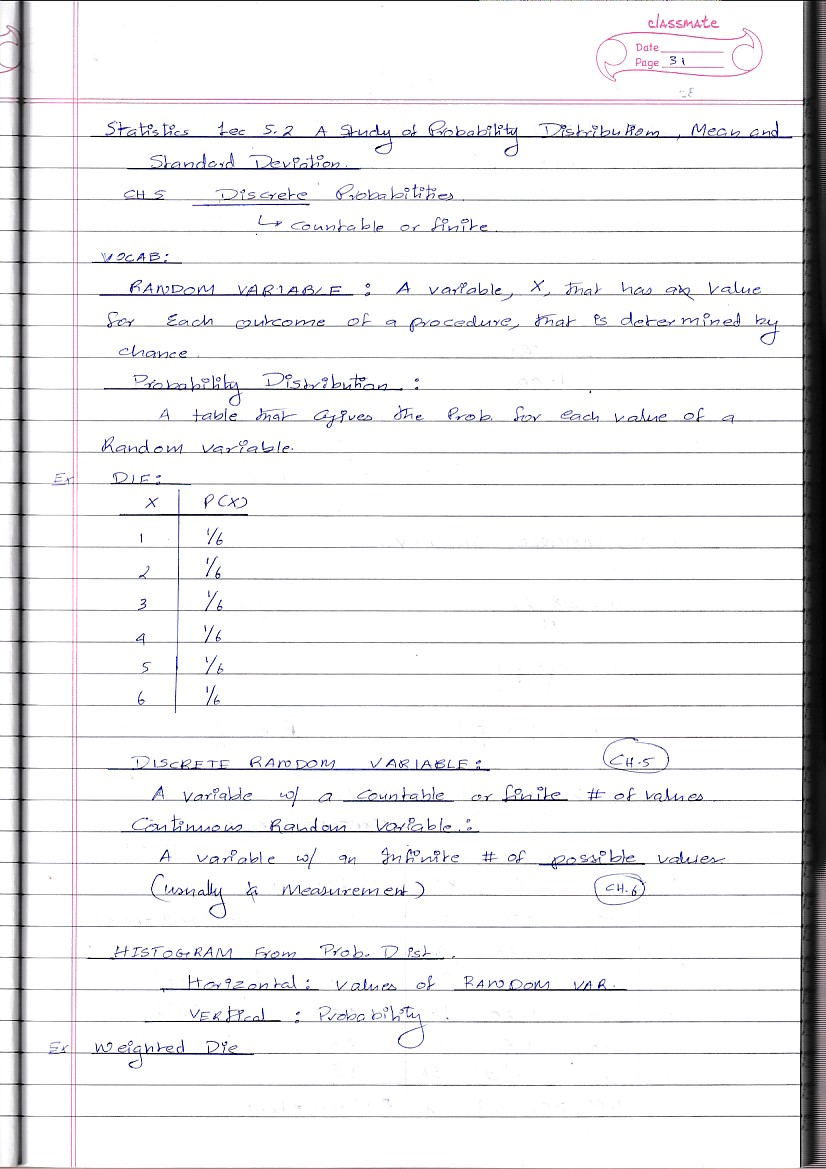 classmate
Date
Page 31
Statistics Lec 5.2 A Study of Probability Distribution, Mean and
Standard Deviation.
CH 5 Discrete Probabilities.
↳ countable or finite.
VOCAB:
RANDOM VARIABLE : A variable, X, that has a value
for Each outcome of a procedure, that is determined by
chance.
Probability Distribution :
A table that gives the Prob. for each value of a
Random variable.
Ex DIE:
X P(X)
1 1/6
2 1/6
3 1/6
4 1/6
5 1/6
6 1/6
DISCRETE RANDOM VARIABLE: CH.5
A variable w/ a countable or finite # of values.
Continuous Random Variable.:
A variable w/ an Infinite # of possible values
(usually a Measurement) CH.6
HISTOGRAM From Prob. Dist.
Horizontal: values of RANDOM VAR.
VERtical : Probability.
Ex Weighted Die